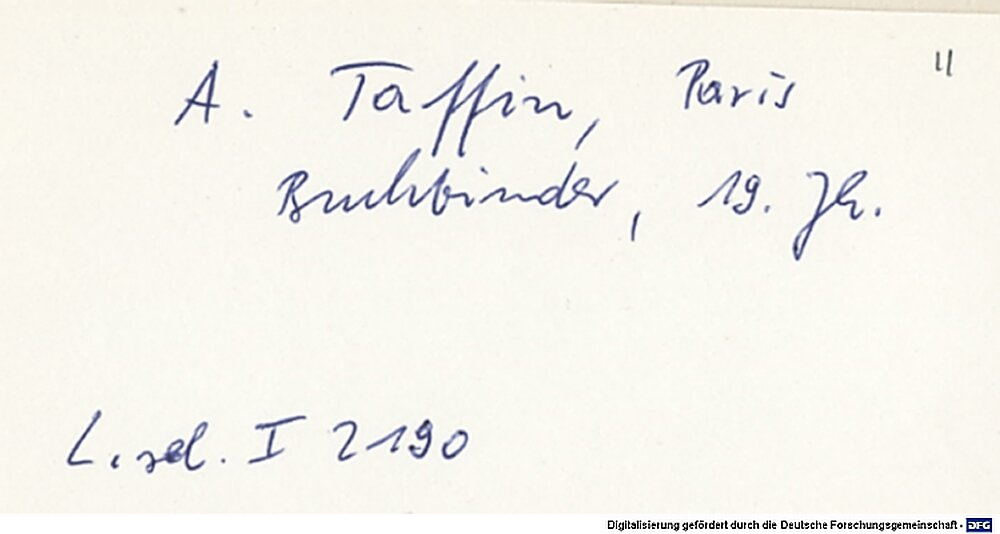 A. Taffin, Paris
11
Buchbinder, 19. Jh.
L. sel. I 2190
Digitalisierung gefördert durch die Deutsche Forschungsgemeinschaft - DFG